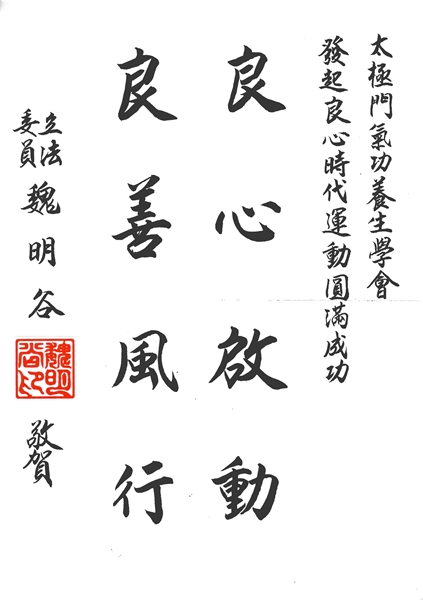 太極門氣功養生學會
發起良心時代運動圓滿成功
良心啟動
良善風行
立法委員魏明谷
魏明谷印
敬賀